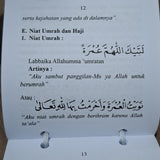 12
serta kejahatan yang ada di dalamnya"
E. Niat Umrah dan Haji
I. Niat Umrah :
لَبَّيْكَ اللّٰهُمَّ عُمْرَةً
Labbaika Allahumma 'umratan
Artinya :
"Aku sambut panggilan-Mu ya Allah untuk
berumrah"
Atau :
نَوَيْتُ الْعُمْرَةَ وَأَحْرَمْتُ بِهَا لِلّٰهِ تَعَالَى
"Aku niat umrah dengan berihram karena Allah
ta'ala"
13